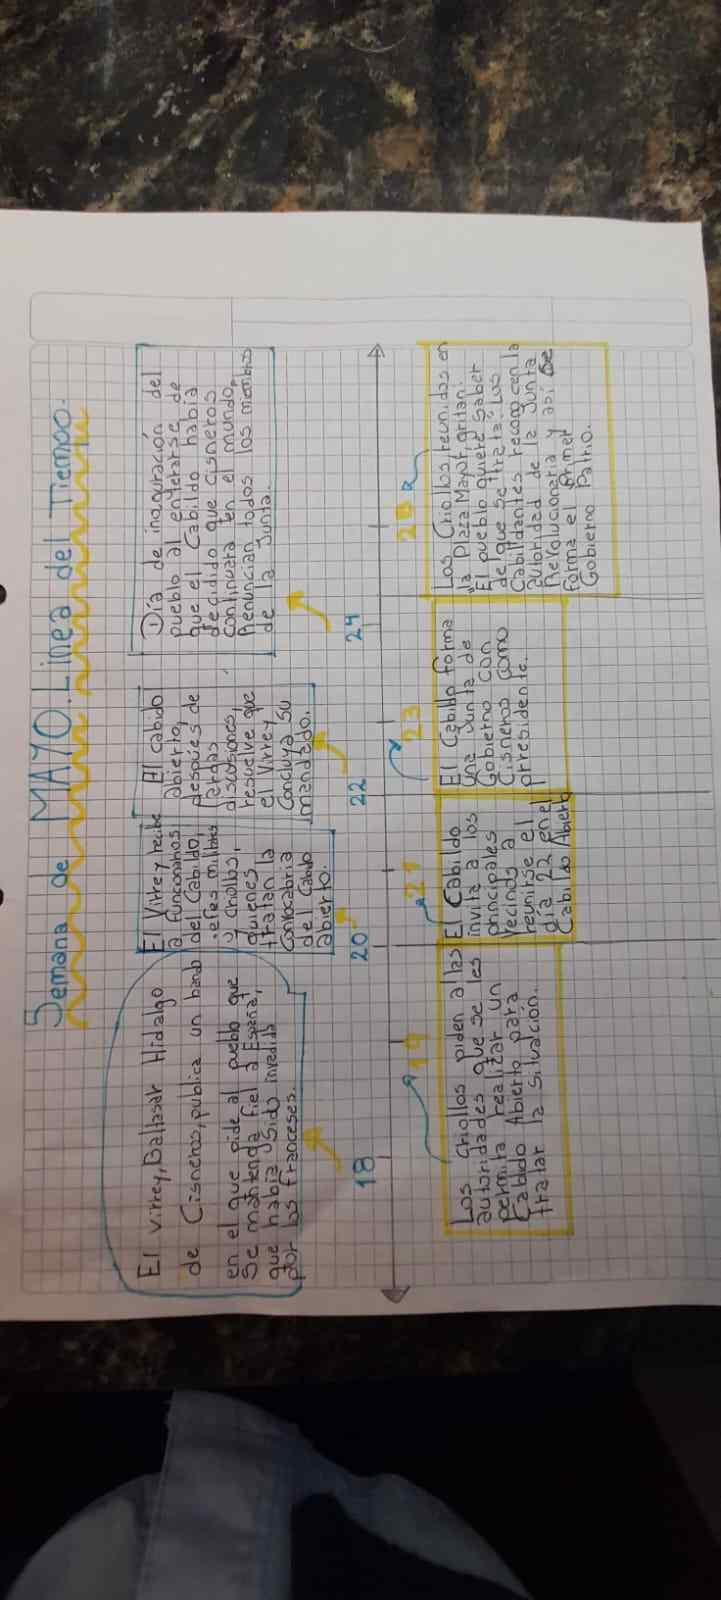 Semana de MAYO. Linea del Tiempo.
El Virrey, Baltasar Hidalgo
de Cisneros, publica un bando
en el que pide al pueblo que
se mantenga fiel a España,
que había sido invadida
por los franceses.
18
El Virrey recibe
a funcionarios
del Cabildo,
jefes militares
y criollos,
quienes
tratan la
del Cabildo
abierto.
20
El cabido
abierto,
después de
largas
discusiones,
resuelve que
el Virrey
concluya su
mandado.
22
Día de inaguración del
pueblo al enterarse de
que el Cabildo había
decidido que Cisneros
continuara en el mundo,
Renuncian todos los miembros
de la Junta.
24
19
Los criollos piden a las
autoridades que se les
permita realizar un
Cabildo Abierto para
tratar la situación.
21
El Cabildo
invita a los
principales
vecinos a
reunirse el
día 22 en el
Cabildo Abierto
23
El Cabildo forma
una Junta de
Gobierno con
Cisneros como
presidente.
Los Criollos reunidos en
la Plaza Mayor, gritan:
"El pueblo quiere saber
de que se trata". Los
Cabildantes reconocen la
autoridad de la Junta
Revolucionaria y así se
forma el primer
Gobierno Patrio.